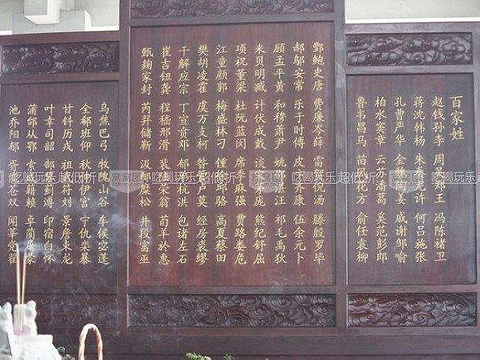 百家姓
赵钱孙李 周吴郑王 冯陈褚卫
蒋沈韩杨 朱秦尤许 何吕施张
孔曹严华 金魏陶姜 戚谢邹喻
柏水窦章 云苏潘葛 奚范彭郎
鲁韦昌马 苗凤花方 俞任袁柳
酆鲍史唐 费廉岑薛 雷贺倪汤 滕殷罗毕
郝邬安常 乐于时傅 皮卞齐康 伍余元卜
顾孟平黄 和穆萧尹 姚邵湛汪 祁毛禹狄
米贝明臧 计伏成戴 谈宋茅庞 熊纪舒屈
项祝董梁 杜阮蓝闵 席季麻强 贾路娄危
江童颜郭 梅盛林刁 钟徐邱骆 高夏蔡田
樊胡凌霍 虞万支柯 昝管卢莫 经房裘缪
干解应宗 丁宣贲邓 郁单杭洪 包诸左石
崔吉钮龚 程嵇邢滑 裴陆荣翁 荀羊於惠
甄麴家封 芮羿储靳 汲邴糜松 井段富巫
乌焦巴弓 牧隗山谷 车侯宓蓬
全郗班仰 秋仲伊宫 宁仇栾暴
甘钭历戎 祖武符刘 景詹束龙
叶幸司韶 郜黎蓟薄 印宿白怀
蒲邰从鄂 索咸籍赖 卓蔺屠蒙
池乔阳郁 胥能苍双 闻莘党翟
吃喝玩乐超低折
吃喝玩乐超低折
吃喝玩乐超低折